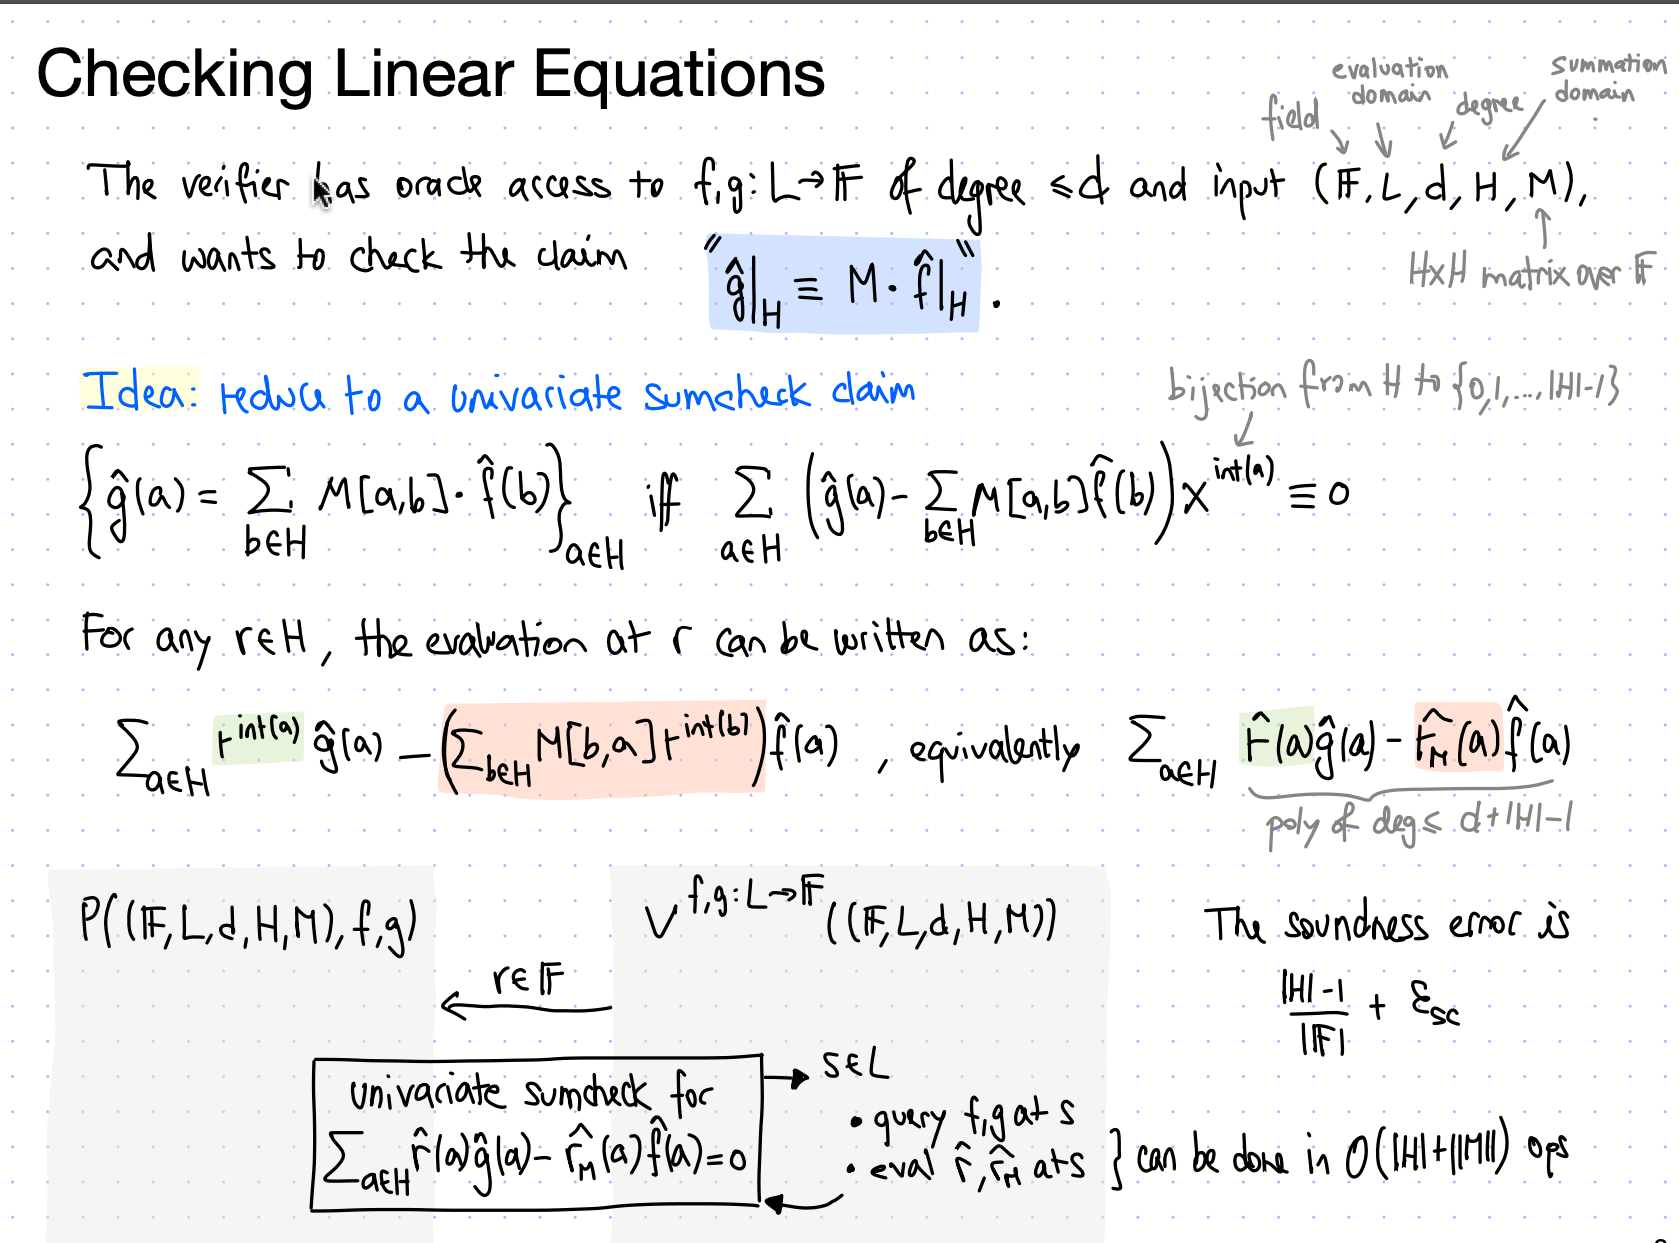 Checking Linear Equations
field evaluation domain degree summation domain
The verifier has oracle access to f,g: L→𝔽 of degree ≤d and input (𝔽, L, d, H, M),
and wants to check the claim "ĝ|_H ≡ M · f̂|_H".
H×H matrix over 𝔽
Idea: reduce to a univariate sumcheck claim
bijection from H to {0,1,...,|H|-1}
{ĝ(a) = ∑_{b∈H} M[a,b]· f̂(b)}_{a∈H} iff ∑_{a∈H} (ĝ(a) - ∑_{b∈H} M[a,b] f̂(b)) X^{int(a)} ≡ 0
For any r∈H, the evaluation at r can be written as:
∑_{a∈H} r^{int(a)} ĝ(a) - (∑_{b∈H} M[b,a] r^{int(b)}) f̂(a) , equivalently ∑_{a∈H} r̂(a)ĝ(a) - r̂_M(a) f̂(a)
poly of deg ≤ d+|H|-1
P((𝔽,L,d,H,M),f,g) V^{f,g:L→𝔽}((𝔽,L,d,H,M))
r∈𝔽
The soundness error is
(|H|-1)/|𝔽| + ε_sc
univariate sumcheck for
∑_{a∈H} r̂(a)ĝ(a) - r̂_M(a) f̂(a) = 0
s∈L
• query f,g at s
• eval r̂, r̂_M at s } can be done in O(|H|+||M||) ops